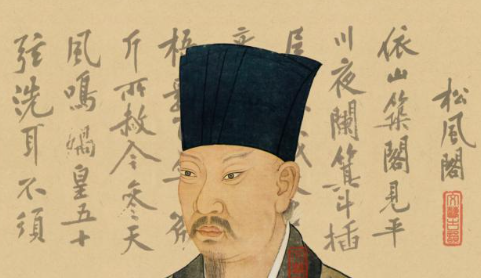 松風閣
依山築閣見平
川夜闌箕斗插
梧
斤所赦今參天
風鳴媧皇五十
弦洗耳不須